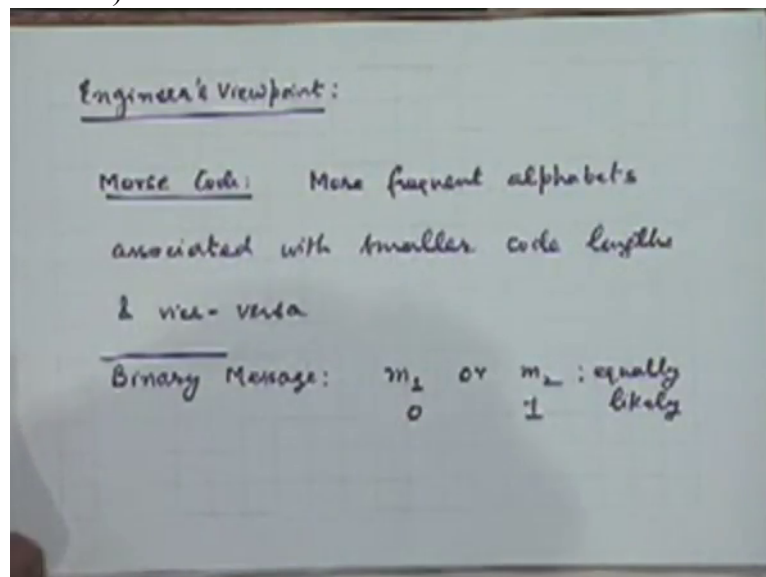 Engineer's Viewpoint:
Morse Code: More frequent alphabets
associated with smaller code lengths
& vice-versa
Binary Message: m1 or m2 : equally
0 1 likely